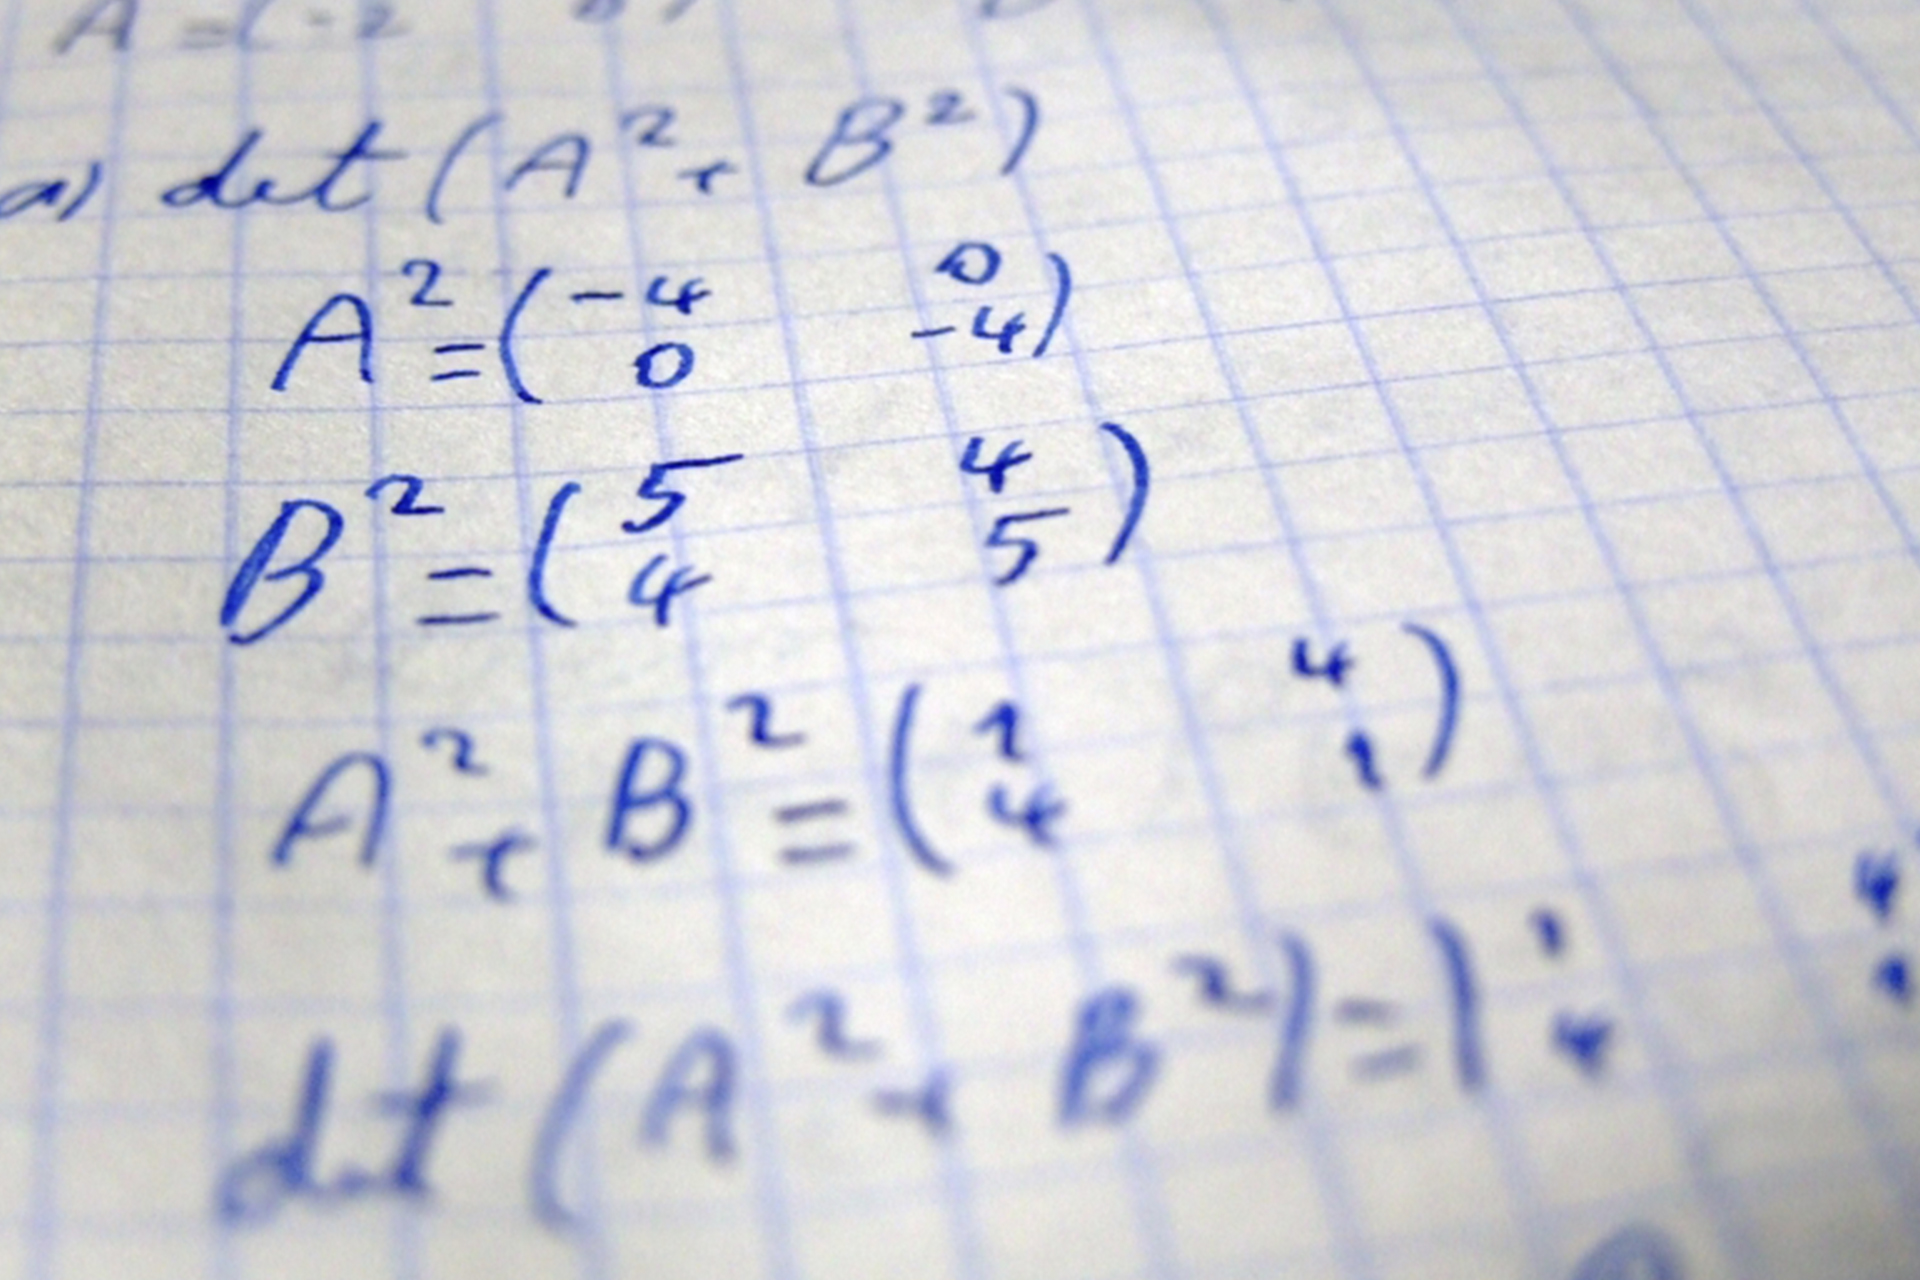 A = ( -2 0
a) det ( A² + B² )
A² = ( -4 0
0 -4 )
B² = ( 5 4
4 5 )
A² + B² = ( 1 4
4 1 )
det ( A² + B² ) = | 1 4
4 1